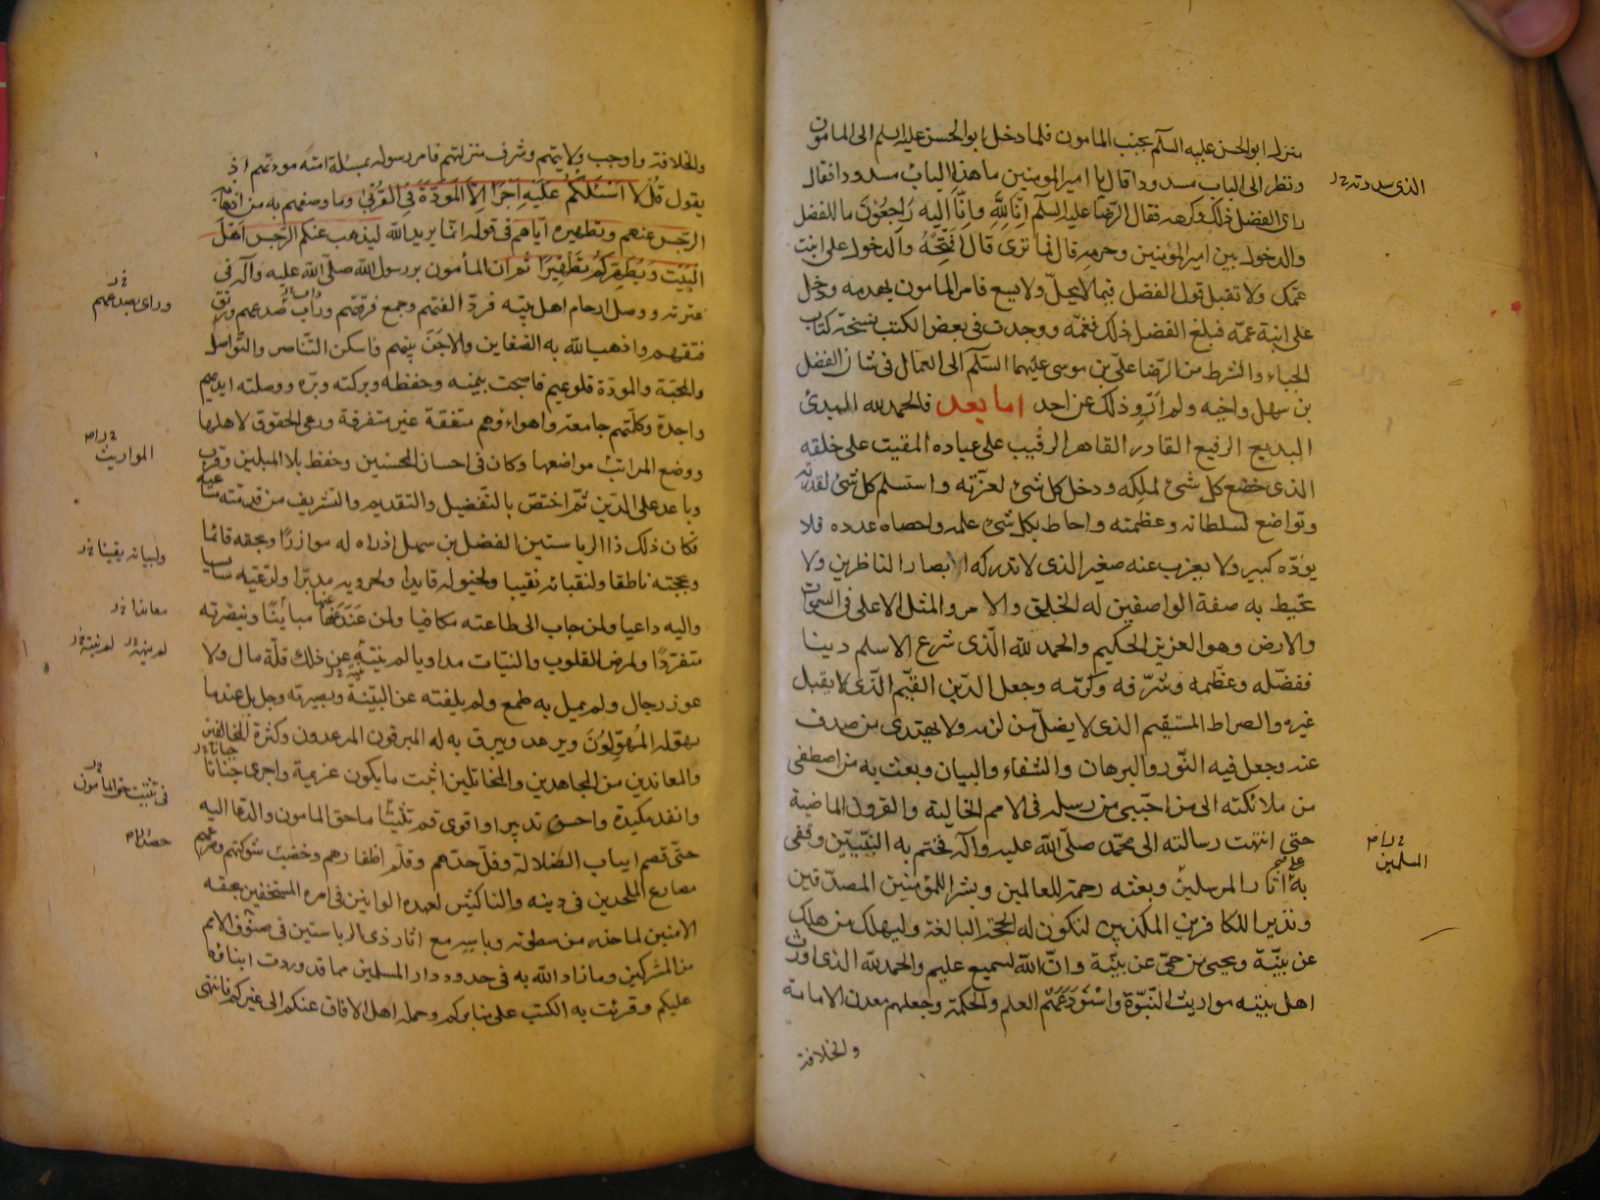 منزله ابو الحسن عليه السلم بجنب المامون فلما دخل ابو الحسن عليه السلم الى المامون
ونظر الى الباب مسدودا قال يا امير المومنين ما هذا الباب مسدودا فقال
راى الفضل ذلك وكرهه فقال الرضا عليه السلم انا لله وانا اليه راجعون ما للفضل
والدخول بين امير المؤمنين وحرمه قال فما ترى قال افتحه والدخول على ابنت
عمك ولا تقبل قول الفضل فيما لا يحل ولا يسع فامر المامون بهدمه ودخل
على ابنة عمه فبلغ الفضل ذلك فغمه ووجدت في بعض الكتب نسخة كتاب
الحباء والشرط من الرضا علي بن موسى عليهما السلم الى العمال في شان الفضل
بن سهل واخيه ولم اَرْوِ ذلك عن احد اما بعد فالحمد لله المبدئ
البديع الرفيع القادر القاهر الرقيب على عباده المقيت على خلقه
الذى خضع كل شئ لملكه ودخل كل شئ لعزته واستسلم كل شئ لقدرته
وتواضع لسلطانه وعظمته واحاط بكل شئ علمه واحصاه عدده فلا
يؤدّه كبير ولا يعزب عنه صغير الذى لا تدركه الابصار الناظرين ولا
تحيط به صفة الواصفين له الخلق والامر والمثل الاعلى فى السموات
والارض وهو العزيز الحكيم والحمد لله الّذى شرع الاسلم دينا
ففضّله وعظّمه وشرّفه وكرّمه وجعل الدّين القيّم الّذى لا يقبل
غيره والصراط المستقيم الذى لا يضلّ من لزمه ولا يهتدى من صدف
عنه وجعل فيه النّور والبرهان والشفاء والبيان وبعث به من اصطفى
من ملائكته الى من اجتبى من رسله فى الامم الخالية والقرون الماضية
حتى انتهت رسالته الى محمّد صلّى الله عليه وآله فختم به النّبيّين وقفى
به على آثار المرسلين وبعثه رحمة للعالمين وبشيرا للمؤمنين المصدّقين
ونذيرا للكافرين المكذبين لتكون له الحجة البالغة وليهلك من هلك
عن بيّنة ويحيى من حىّ عن بيّنة وانّ الله لسميع عليم والحمد لله الذى اورث
اهل بيته مواريث النّبوّة واستودعهم العلم والحكمة وجعلهم معدن الامامة
والخلافة
الذى سددته
المسلمين
والخلافة واوجب ولايتهم وشرف منزلتهم فامر رسوله بمسئلة امته مودتهم اذ
يقول قل لا اسئلكم عليه اجرا الا المودة فى القربى وما وصفهم به من اذهابه
الرّجس عنهم وتطهيره ايّاهم فى قوله انّما يريد الله ليذهب عنكم الرّجس اهل
البيت ويطهركم تطهيرا ثم ان المأمون بر رسول الله صلّى الله عليه وآله فى
عترته ووصل ارحام اهل بيته فردّ الفتهم وجمع فرقتهم وراب صدعهم ورتق
فتقهم واذهب الله به الضغاين والاحن بينهم واسكن التّناصر والتّواصل
والمحبّة والمودّة قلوبهم فاصبحت بيمنه وحفظه وبركته وبرّه ووصلته ايديهم
واحدة وكلمتهم جامعة واهواءهم متفقة غير متفرقة ورعى الحقوق لاهلها
ووضع المراتب مواضعها وكان فى احسان المحسنين وحفظ بلا المبلين وقرب
وباعد على الدّين ثمّ اختصّ بالتّفضيل والتقديم والتشريف من قدمته مساعيه
فكان ذلك ذا الرياستين الفضل بن سهل اذ راه له موازرًا وبحقه قائمًا
وبحجته ناطقا ولنقبائه نقيبا ولخيوله قايدا ولحروبه مدبّرا ولرعيّته سايسا
واليه داعيا ولمن جاب الى طاعته مكافيا ولمن عَنَدَ عنها مباينًا وبنصرته
متفرّدًا ولمرض القلوب والنيّات مداويا لم ينهه عن ذلك قلّة مال ولا
عوز رجال ولم يميل به طمع ولم يلفته عن نيّته وبصيرته وجل بل عندما
يهوّله المهوّلون ويرعد ويبرق به له المبرقون المرعدون وكثرة المخالفين
والمعاندين من المجاهدين والمخاتلين اثبت ما يكون عزيمة واجرى جنانًا
وانفذ مكيدة واحسن تدبيرا واقوى فى تثبيت حق المامون والدعا اليه
حتّى قصم انياب الضّلالة وفلّ حدّهم وقلّم اظفارهم وخضد شوكتهم وصرعهم
مصارع الملحدين فى دينه والناكثين لعهده الوانين فى امره المستخفين بحقه
الامنين لما حذر من سطوته وباسه مع آثار ذى الرياستين فى صنوف الامم
من المشركين وما زاد الله به فى حدود دار المسلمين مما قد وردت انباؤه
عليكم وقرئت به الكتب على منابركم وحمله اهل الافاق عنكم الى غيركم فانتهى
وراى صدعهم
المواريث
معاندا
فى تثبيت حق المأمون